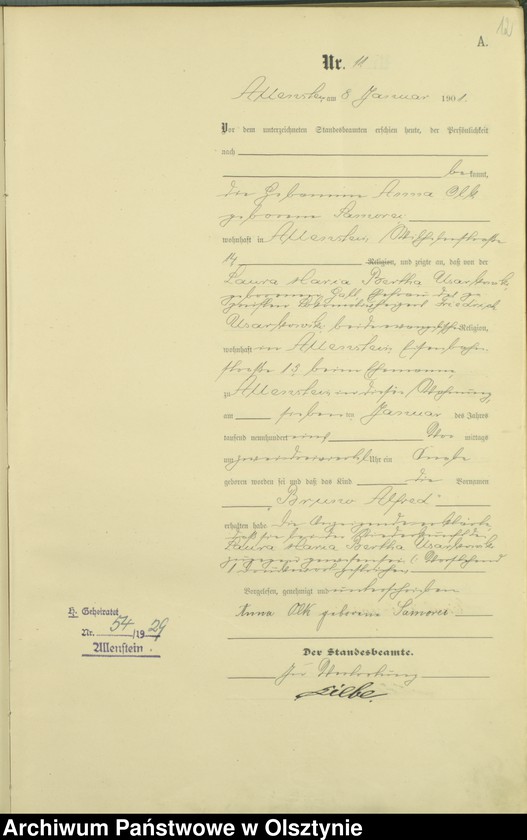 121
A.
Nr. 11
Allenstein am 8 Januar 1901.
Vor dem unterzeichneten Standesbeamten erschien heute, der Persönlichkeit
nach
bekannt,
die Hebamme Anna Olk
geborene Samorei
wohnhaft in Allenstein
14 Religion, und zeigte an, daß von der
Laura Maria Bertha
geborenen Ehefrau des
Friedrich
beide Religion,
wohnhaft in Allenstein, Eisenbahn-
straße 13 beim Ehemann,
zu Allenstein in dieser Wohnung,
am sieben ten Januar des Jahres
tausend neunhundert eins Vor mittags
um Uhr ein Knabe
geboren worden sei und daß das Kind die Vornamen
„Bruno Alfred“
erhalten habe. Die Anzeigende erklärte,
daß sie bei der Niederkunft der
Laura Maria Bertha
zugegen gewesen sei. Vorstehend
gestrichen.
Vorgelesen, genehmigt und unterschrieben
Anna Olk geborene Samorei
Der Standesbeamte.
H. Geheiratet
Nr. 54/1929
Allenstein.
Archiwum Państwowe w Olsztynie